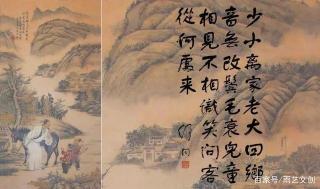 少小离家老大回鄉
音無改鬢毛衰兒童
相見不相識笑問客
從何處來
百家号/雨艺文创